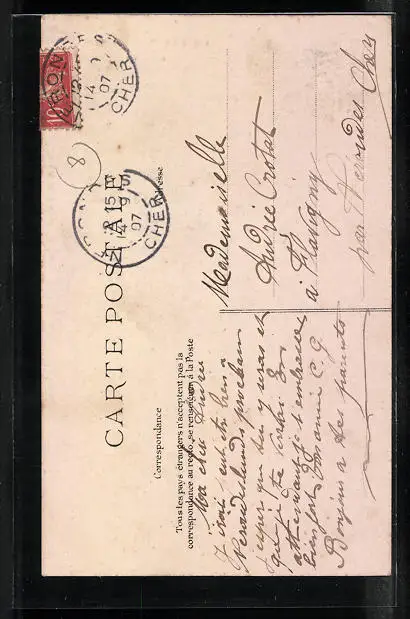 CARTE POSTALE
Correspondance
Adresse
Tous les pays étrangers n'acceptent pas la
correspondance au recto, se renseigner à la Poste
10
CHER
14
07
8
15
14
07
CHER
Mademoiselle
Andrée Crotat
à Flavigny
par Nérondes Cher
Ma chère Andrée
J'irai peut-être bien
Nérondes lundi prochain
j'espère que tu y seras et
que je te verrai. En
attendant je t'embrasse
bien fort. Ton amie C. G.
Bonjour à tes parents